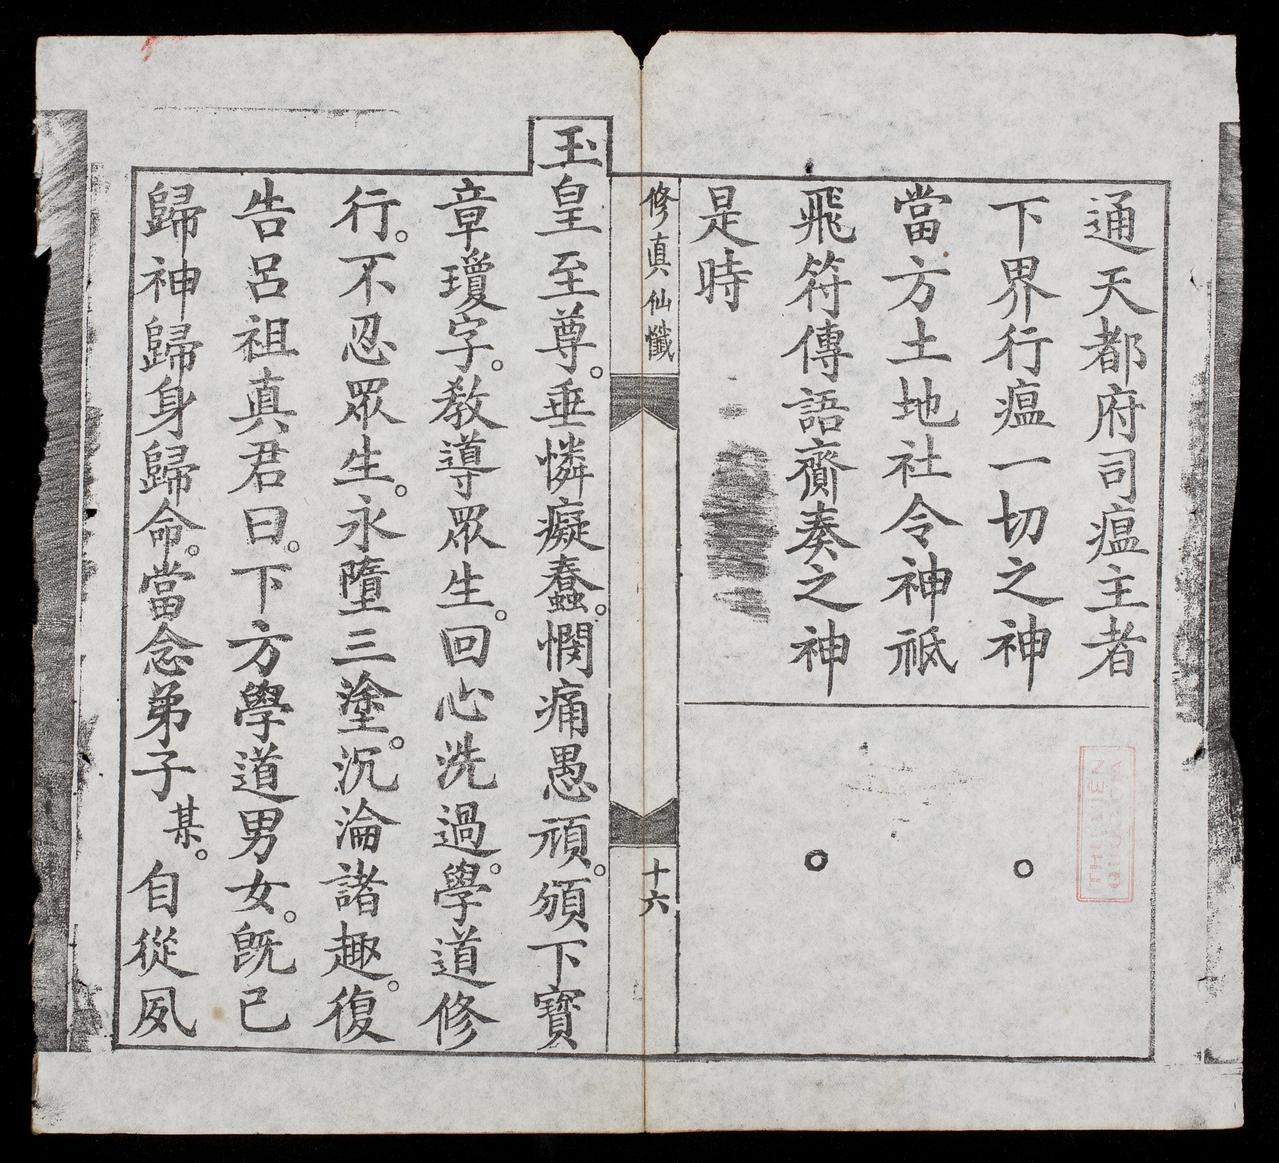 通天都府司瘟主者
下界行瘟一切之神
當方土地社令神祇
飛符傳語齎奏之神
是時
修真仙懺
十六
玉皇至尊。垂憐癡蠢。憫痛愚頑。頒下寶
章瓊字。教導眾生。回心洗過。學道修
行。不忍眾生。永墮三塗。沉淪諸趣。復
告呂祖真君曰。下方學道男女。既已
歸神歸身歸命。當念弟子某。自從夙